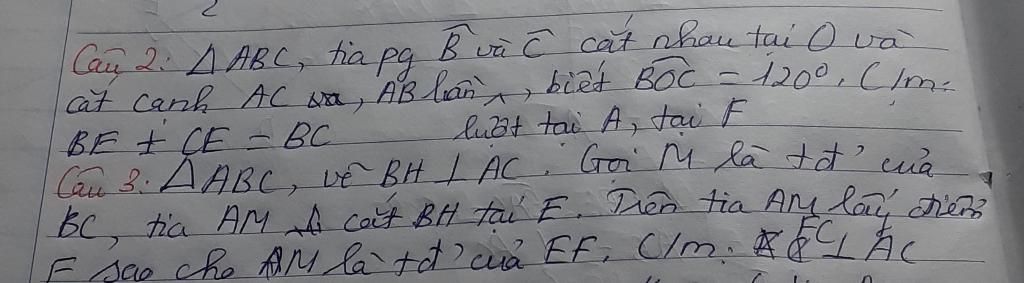 2
Câu 2: Δ ABC, tia pg B̂ và Ĉ cắt nhau tại O và
cắt cạnh AC và, AB lần, biết B̂OC = 120°. C/m:
BF + CE = BC lượt tại A, tại F
Câu 3: Δ ABC, vẽ BH ⊥ AC. Gọi M là tđ' của
BC, tia AM cắt BH tại E. Trên tia AM lấy điểm
F sao cho M là tđ' của EF. C/m: FC ⊥ AC